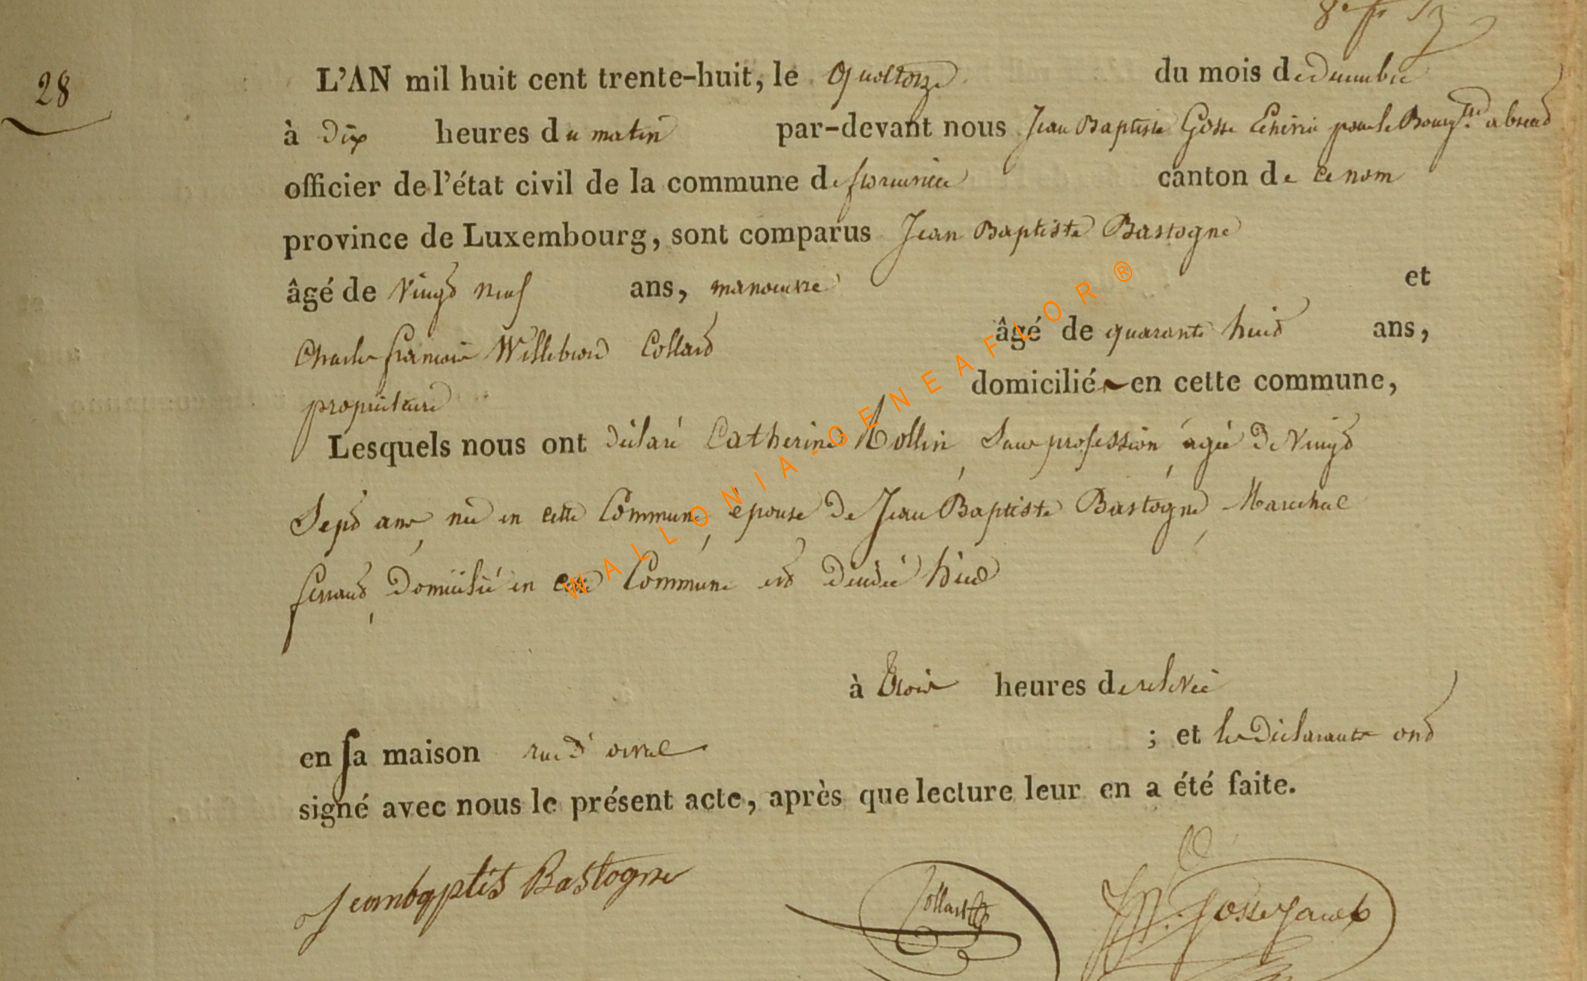 28
L'AN mil huit cent trente-huit, le quatorze du mois de decembre
à dix heures du matin par-devant nous Jean Baptiste Gosse Echevin pour le Bourgtre absend
officier de l'état civil de la commune de florenville canton de ce nom
province de Luxembourg, sont comparus Jean Baptiste Bastogne
âgé de vingd neuf ans, manoeuvre et
Charles francois Willebrord Collard âgé de quarante huid ans,
propriétaire domicilié en cette commune,
Lesquels nous ont déclaré Catherine Rollin, Sans profession, agée de Vingd
Sepd ans, née en cette Commune, épouse de Jean Baptiste Bastogne, Marechal
ferrand, Domicilié en cette Commune est décédée hier
à trois heures de relevée
en sa maison rue d' orval ; et les Déclarants ond
signé avec nous le présent acte, après que lecture leur en a été faite.
Jeanbaptist Bastogne Collard
WALLONIA-GENEAFLOR ®